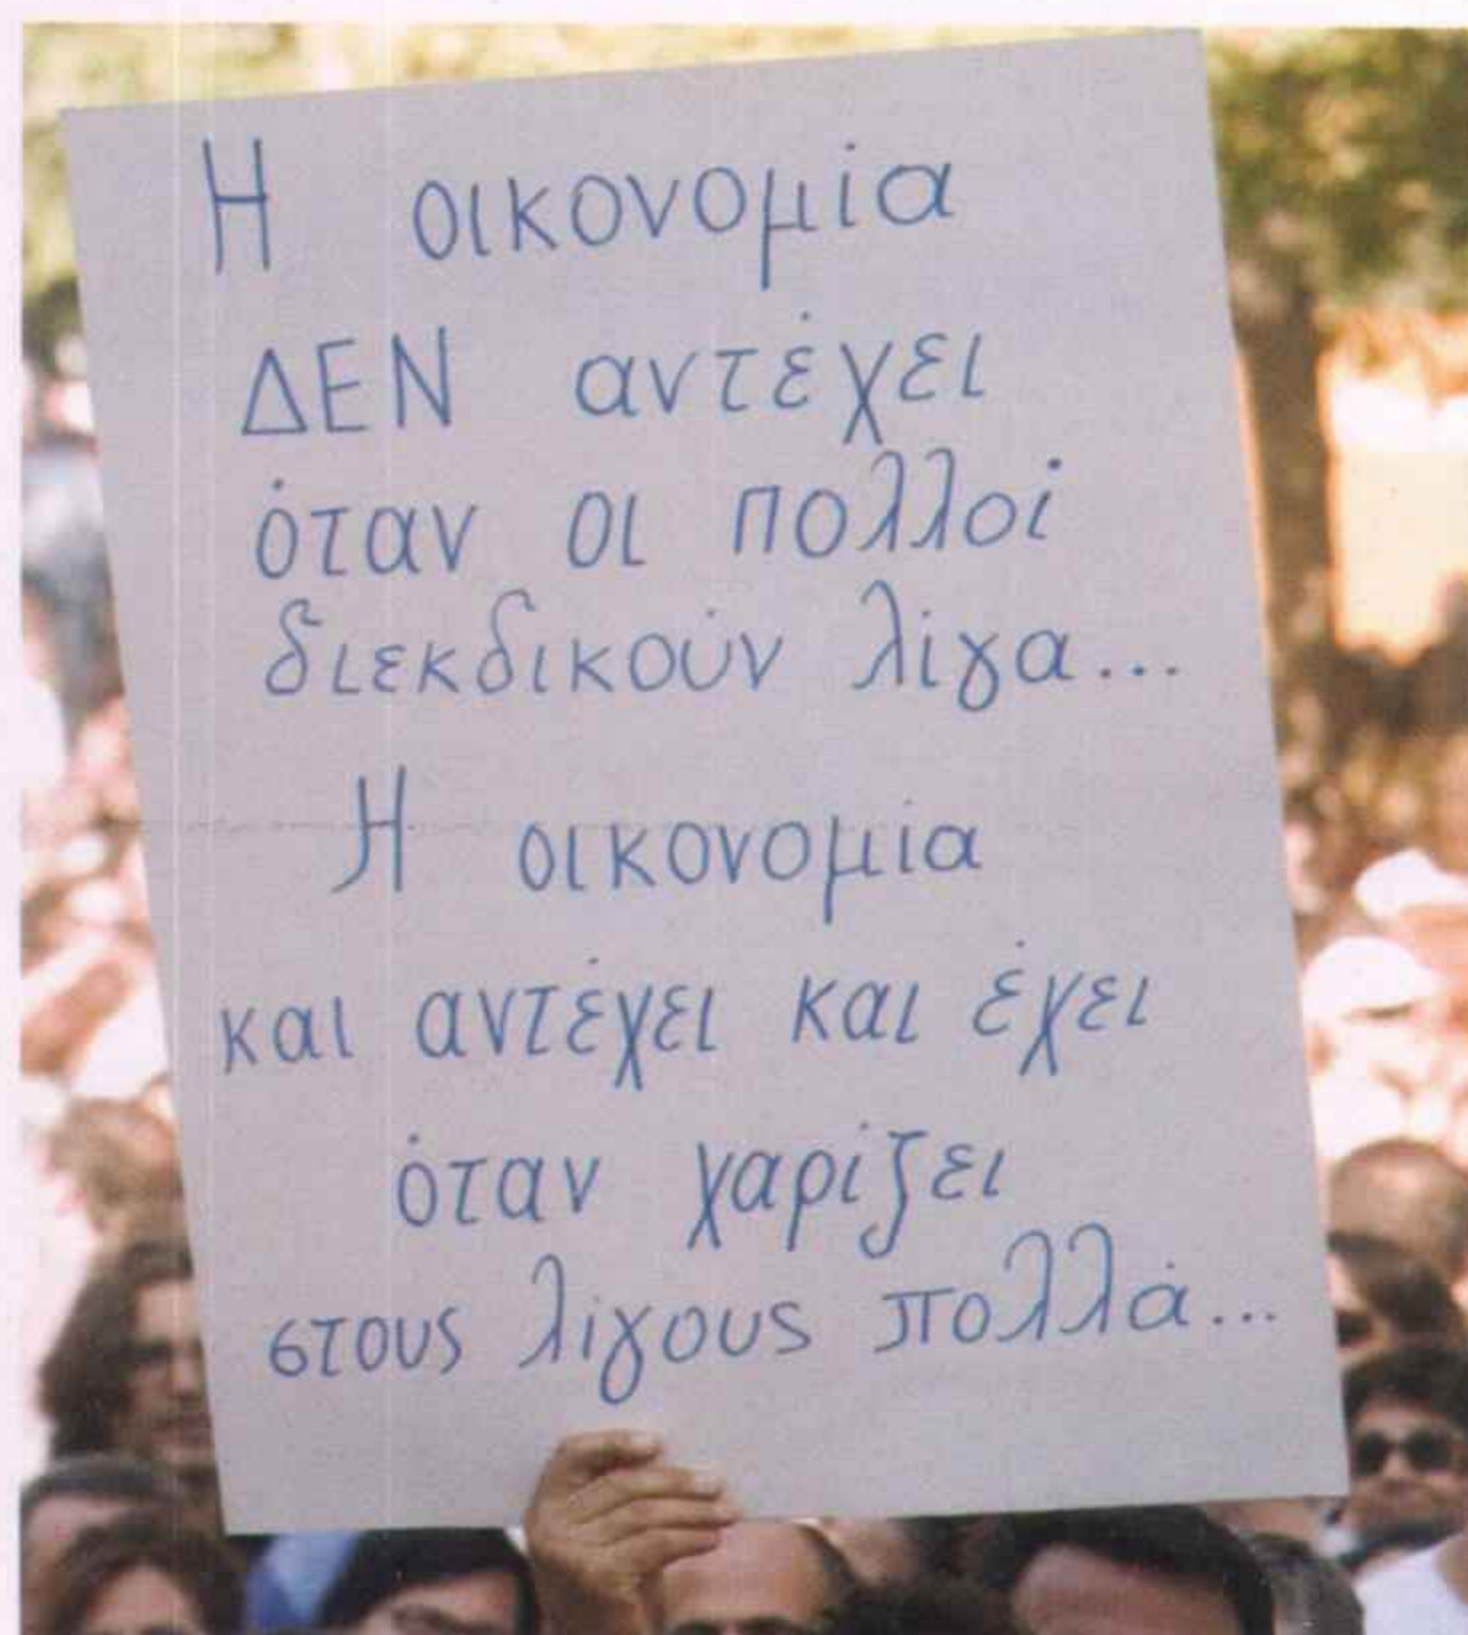 Η οικονομία
ΔΕΝ αντέχει
όταν οι πολλοί
διεκδικούν λίγα...
Η οικονομία
και αντέχει και έχει
όταν χαρίζει
στους λίγους πολλά...